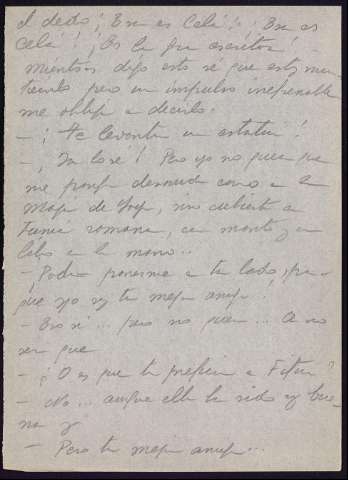 el dedo ¡Ese es Cela! ¡Ese es
Cela! ¡Es la gran escritora! -
Mientras digo esto sé que estoy min-
tiendo pero un impulso irrefrenable
me obliga a decirlo.
- ¡Te levantan un estatua!
- ¡Ya lo sé! Pero yo no quiero que
me pongan desnuda como a la
Maja de Goya, sino cubierta a
romana, con manto y un
libro en la mano..
- Podrán ponerme a tu lado, por-
que yo soy tu mejor amiga!
- Eso sí... pero no quiero... A no
ser que
- ¿O es que tu prefieres a
- No... aunque ella ha sido muy bue-
na y
- Pero tu mejor amiga...